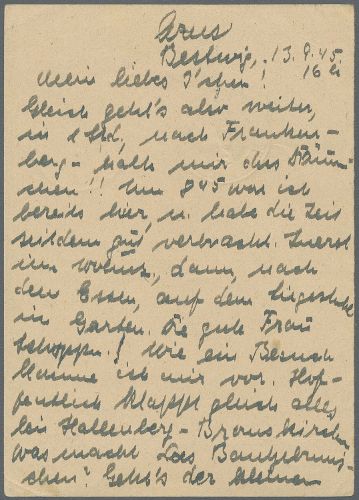 Bestwig, 13.9.45.
16 h
Mein liebes !
Gleich geht's also weiter,
in 1 Std., nach Franken-
berg - halt mir das Däum-
chen!! Um 8 45 war ich
bereits hier, u. habe die Zeit
seitdem gut verbracht. Zuerst
im , dann, nach
dem Essen, auf dem Liegestuhl
im Garten. Die gute Frau
! Wie ein Besuch
komme ich mir vor. Hof-
fentlich klappt gleich alles
bei Hallenberg - Bromskirchen
was macht
chen? Geht's der kleinen